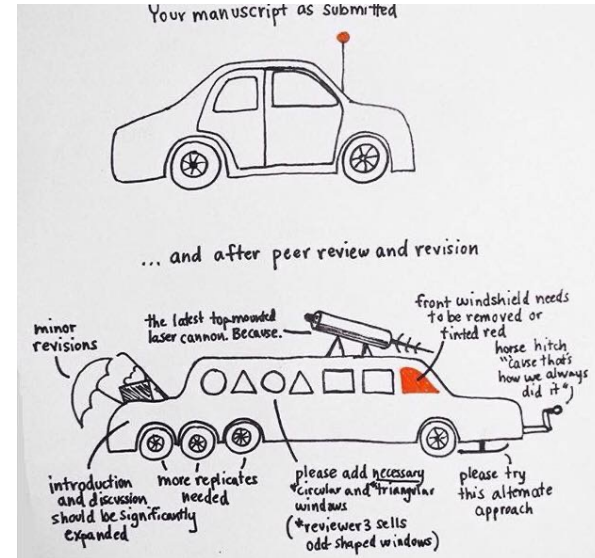 Your manuscript as submitted
... and after peer review and revision
minor
revisions
the latest top mounted
laser cannon. Because.
front windshield needs
to be removed or
tinted red
horse hitch
"'cause that's
how we always
did it"
introduction
and discussion
should be significantly
expanded
more replicates
needed
please add necessary
*circular and *triangular
windows
(*reviewer 3 sells
odd-shaped windows)
please try
this alternate
approach